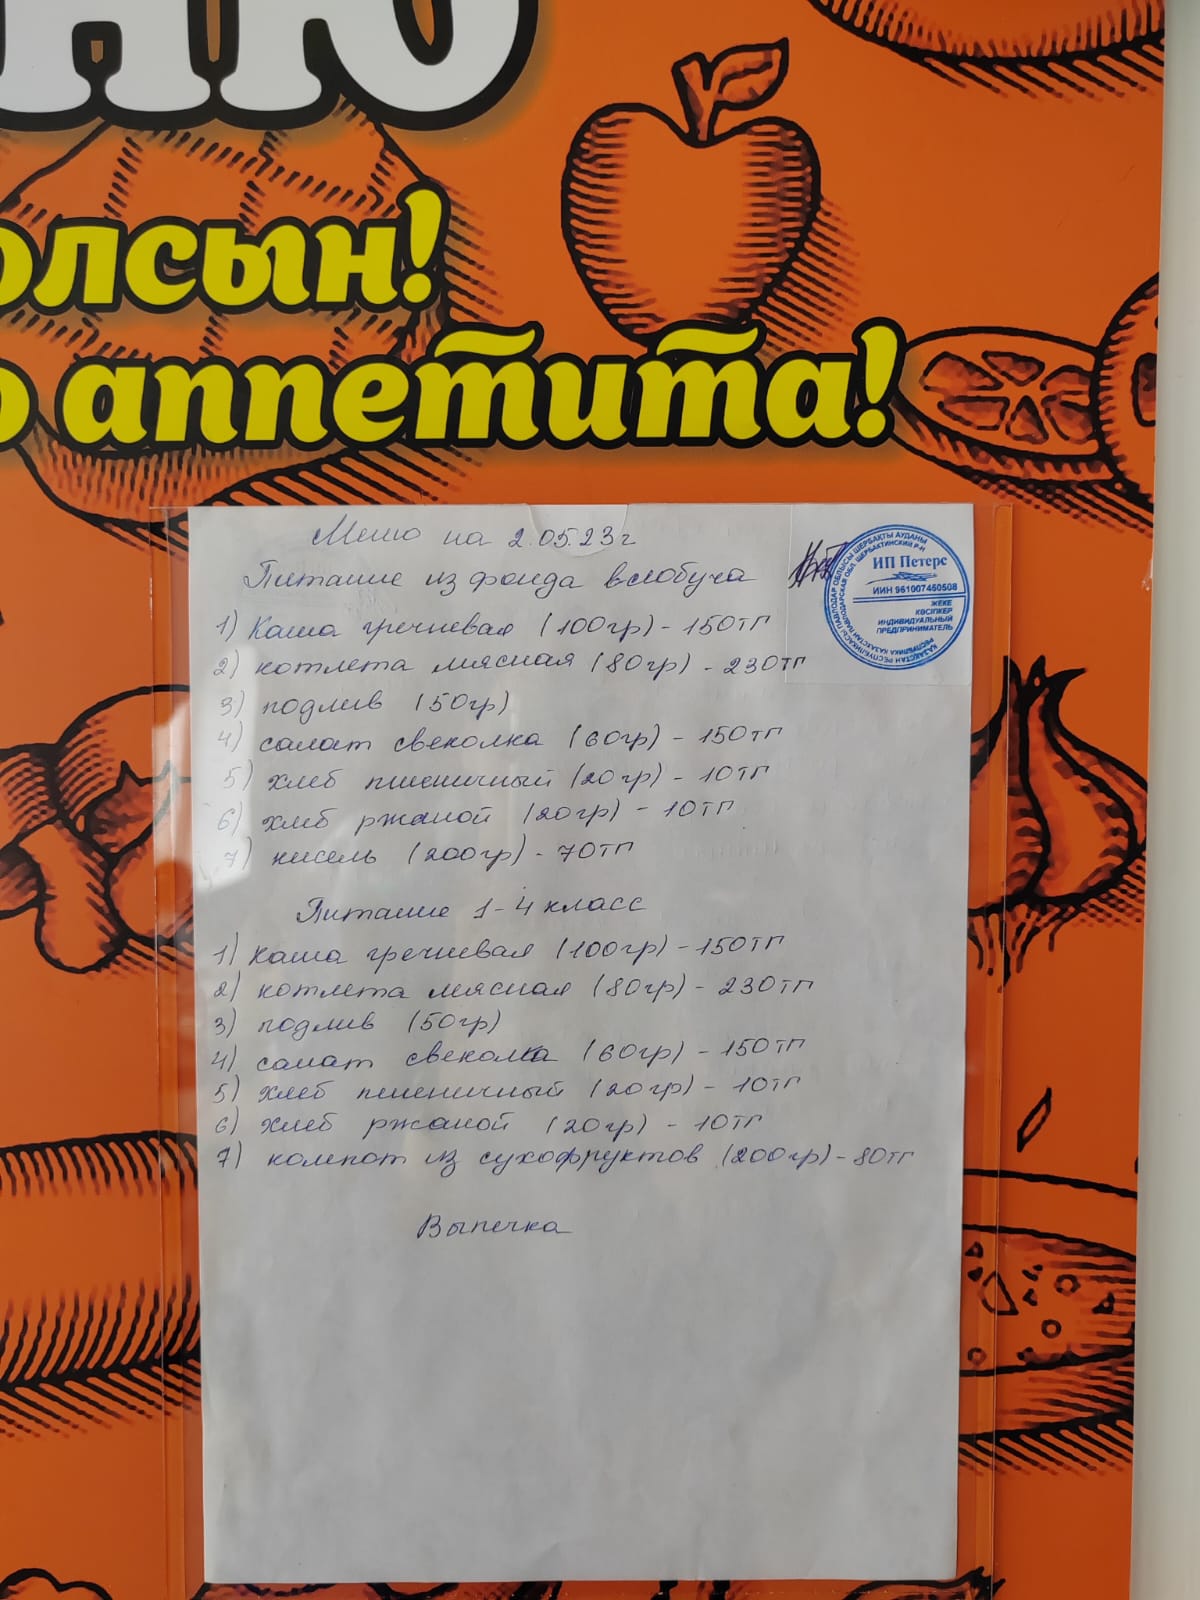 ню
олсын!
о аппетита!
Меню на 2.05.23г
Питание из фонда всеобуча
1) Каша гречневая (100гр) - 150тг
2) котлета мясная (80гр) - 230тг
3) подлив (50гр)
4) салат свеколка (60гр) - 150тг
5) хлеб пшеничный (20гр) - 10тг
6) хлеб ржаной (20гр) - 10тг
7) кисель (200гр) - 70тг
Питание 1-4 класс
1) Каша гречневая (100гр) - 150тг
2) котлета мясная (80гр) - 230тг
3) подлив (50гр)
4) салат свеколка (60гр) - 150тг
5) хлеб пшеничный (20гр) - 10тг
6) хлеб ржаной (20гр) - 10тг
7) компот из сухофруктов (200гр) - 80тг
Выпечка
ИП Петерс
ИИН 961007450508
ЖЕКЕ
КӘСІПКЕР
ИНДИВИДУАЛЬНЫЙ
ПРЕДПРИНИМАТЕЛЬ